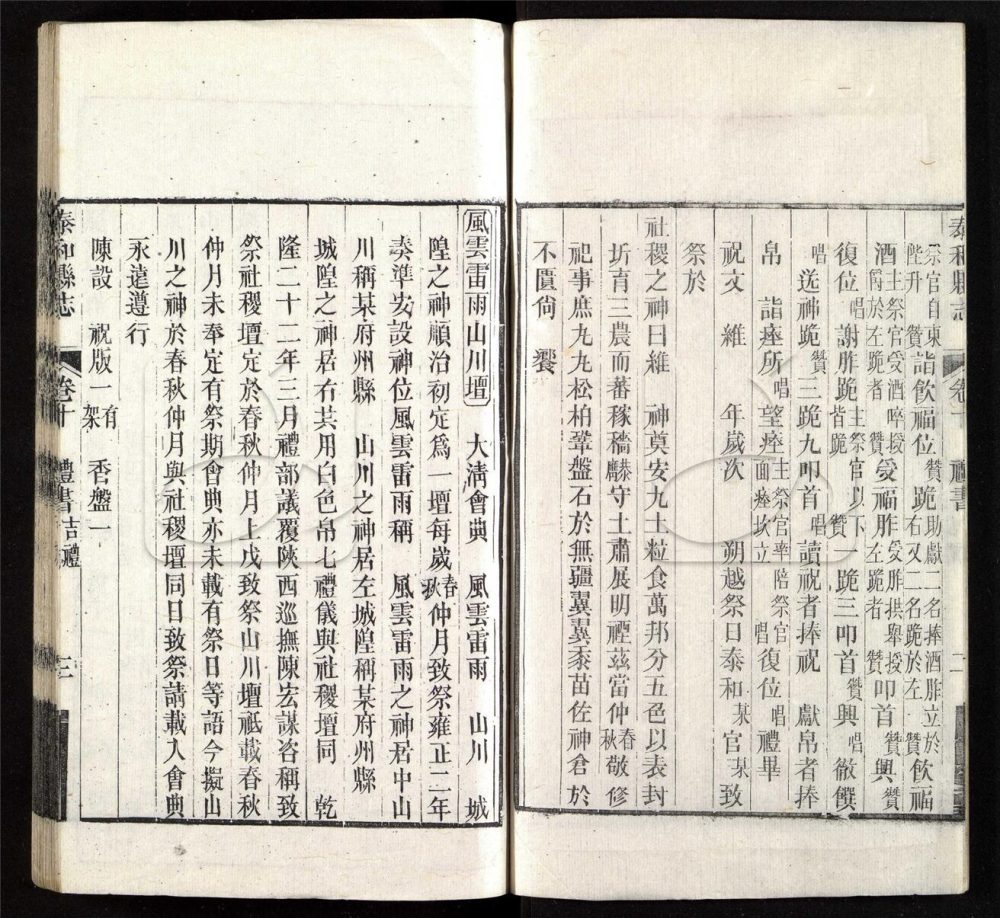 泰和縣志 卷十 禮書 二
祭官自東陛升 贊詣飲福位 贊跪 助獻二名捧酒胙立於右又二名跪於左一贊飲福
酒 主祭官受酒啐授爵於左跪者 贊受福胙 受胙拱舉授左跪者 贊叩首 贊興 贊
復位 唱謝胙跪 主祭官以下皆跪 贊一跪三叩首 贊興 唱徹饌
唱送神跪 贊三跪九叩首 唱讀祝者捧祝 獻帛者捧
帛 詣瘞所 唱望瘞 主祭官率陪祭官面瘞坎立 唱復位 唱禮畢
祝文 維 年歲次 朔越祭日泰和某官某致
祭於
社稷之神曰維 神奠安九土粒食萬邦分五色以表封
圻育三農而蕃稼穡麟守土肅展明禋茲當仲春秋敬修
祀事庶丸丸松柏鞏盤石於無疆翼翼黍苗佐神倉於
不匱尚 饗
風雲雷雨山川壇 大清會典 風雲雷雨 山川 城
隍之神順治初定爲一壇每歲春秋仲月致祭雍正二年
奏準安設神位風雲雷雨稱 風雲雷雨之神居中山
川稱某府州縣 山川之神居左城隍稱某府州縣
城隍之神居右共用白色帛七禮儀與社稷壇同 乾
隆二十二年三月禮部議覆陝西巡撫陳宏謀咨稱致
祭社稷壇定於春秋仲月上戊致祭山川壇祗載春秋
仲月未奉定有祭期會典亦未載有祭日等語今擬山
川之神於春秋仲月與社稷壇同日致祭請載入會典
永遠遵行
陳設 祝版一有架 香盤一
泰和縣志 卷十 禮書 吉禮 三